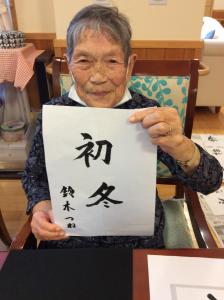 初冬
鈴木つね